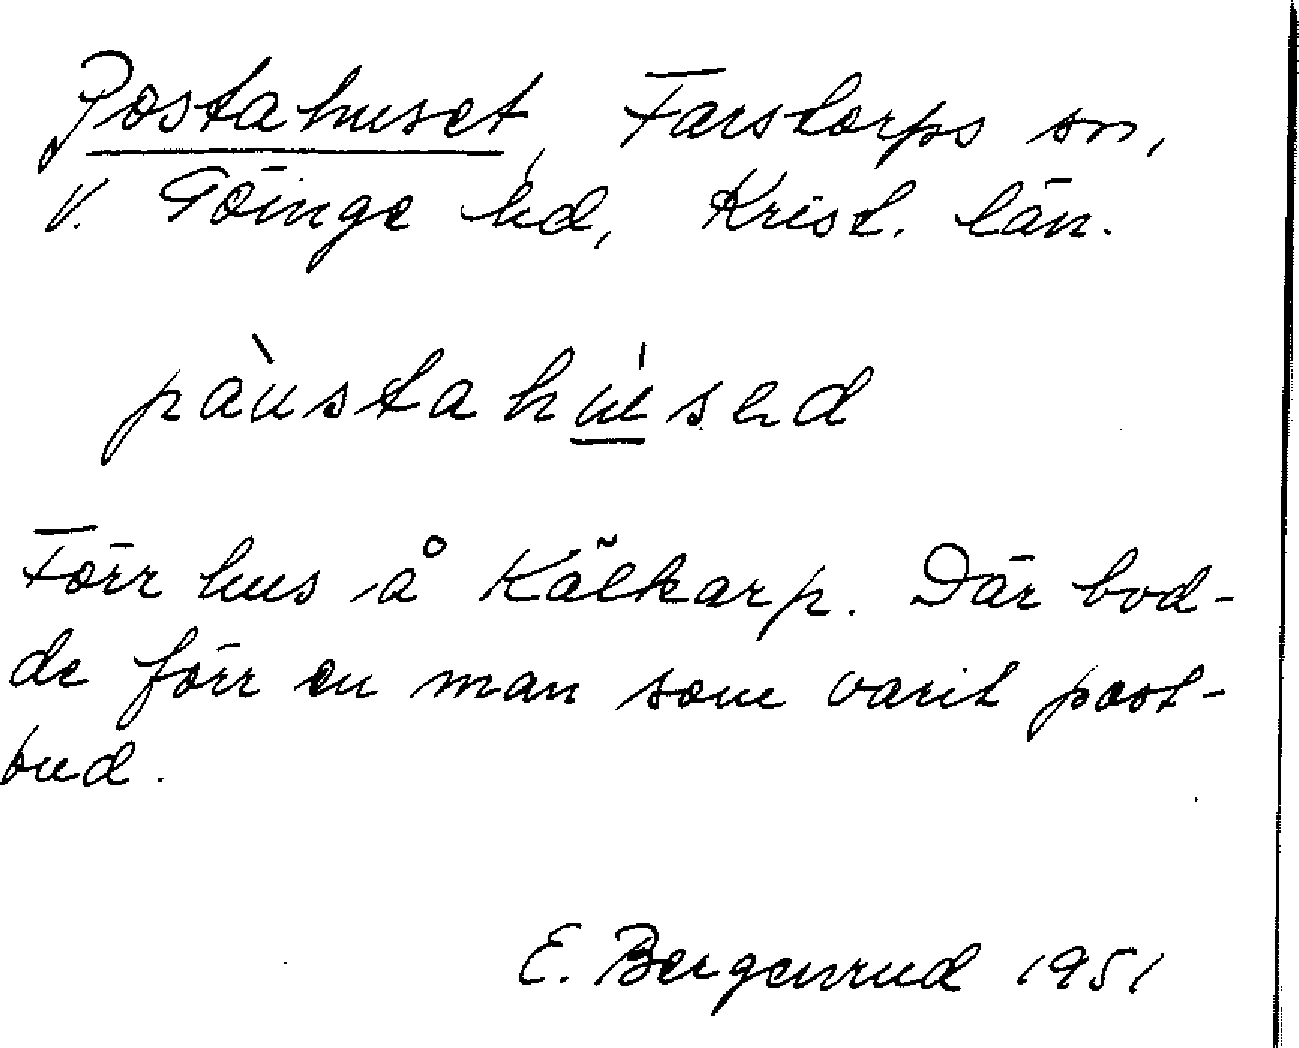 Postahuset, Farstorps sn,
V. Göinge hd, Krist. län.
pàustahúsed
Förr hus å Kälkarp. Där bod-
de förr en man som varit post-
bud.
E. Bergenrud 1951